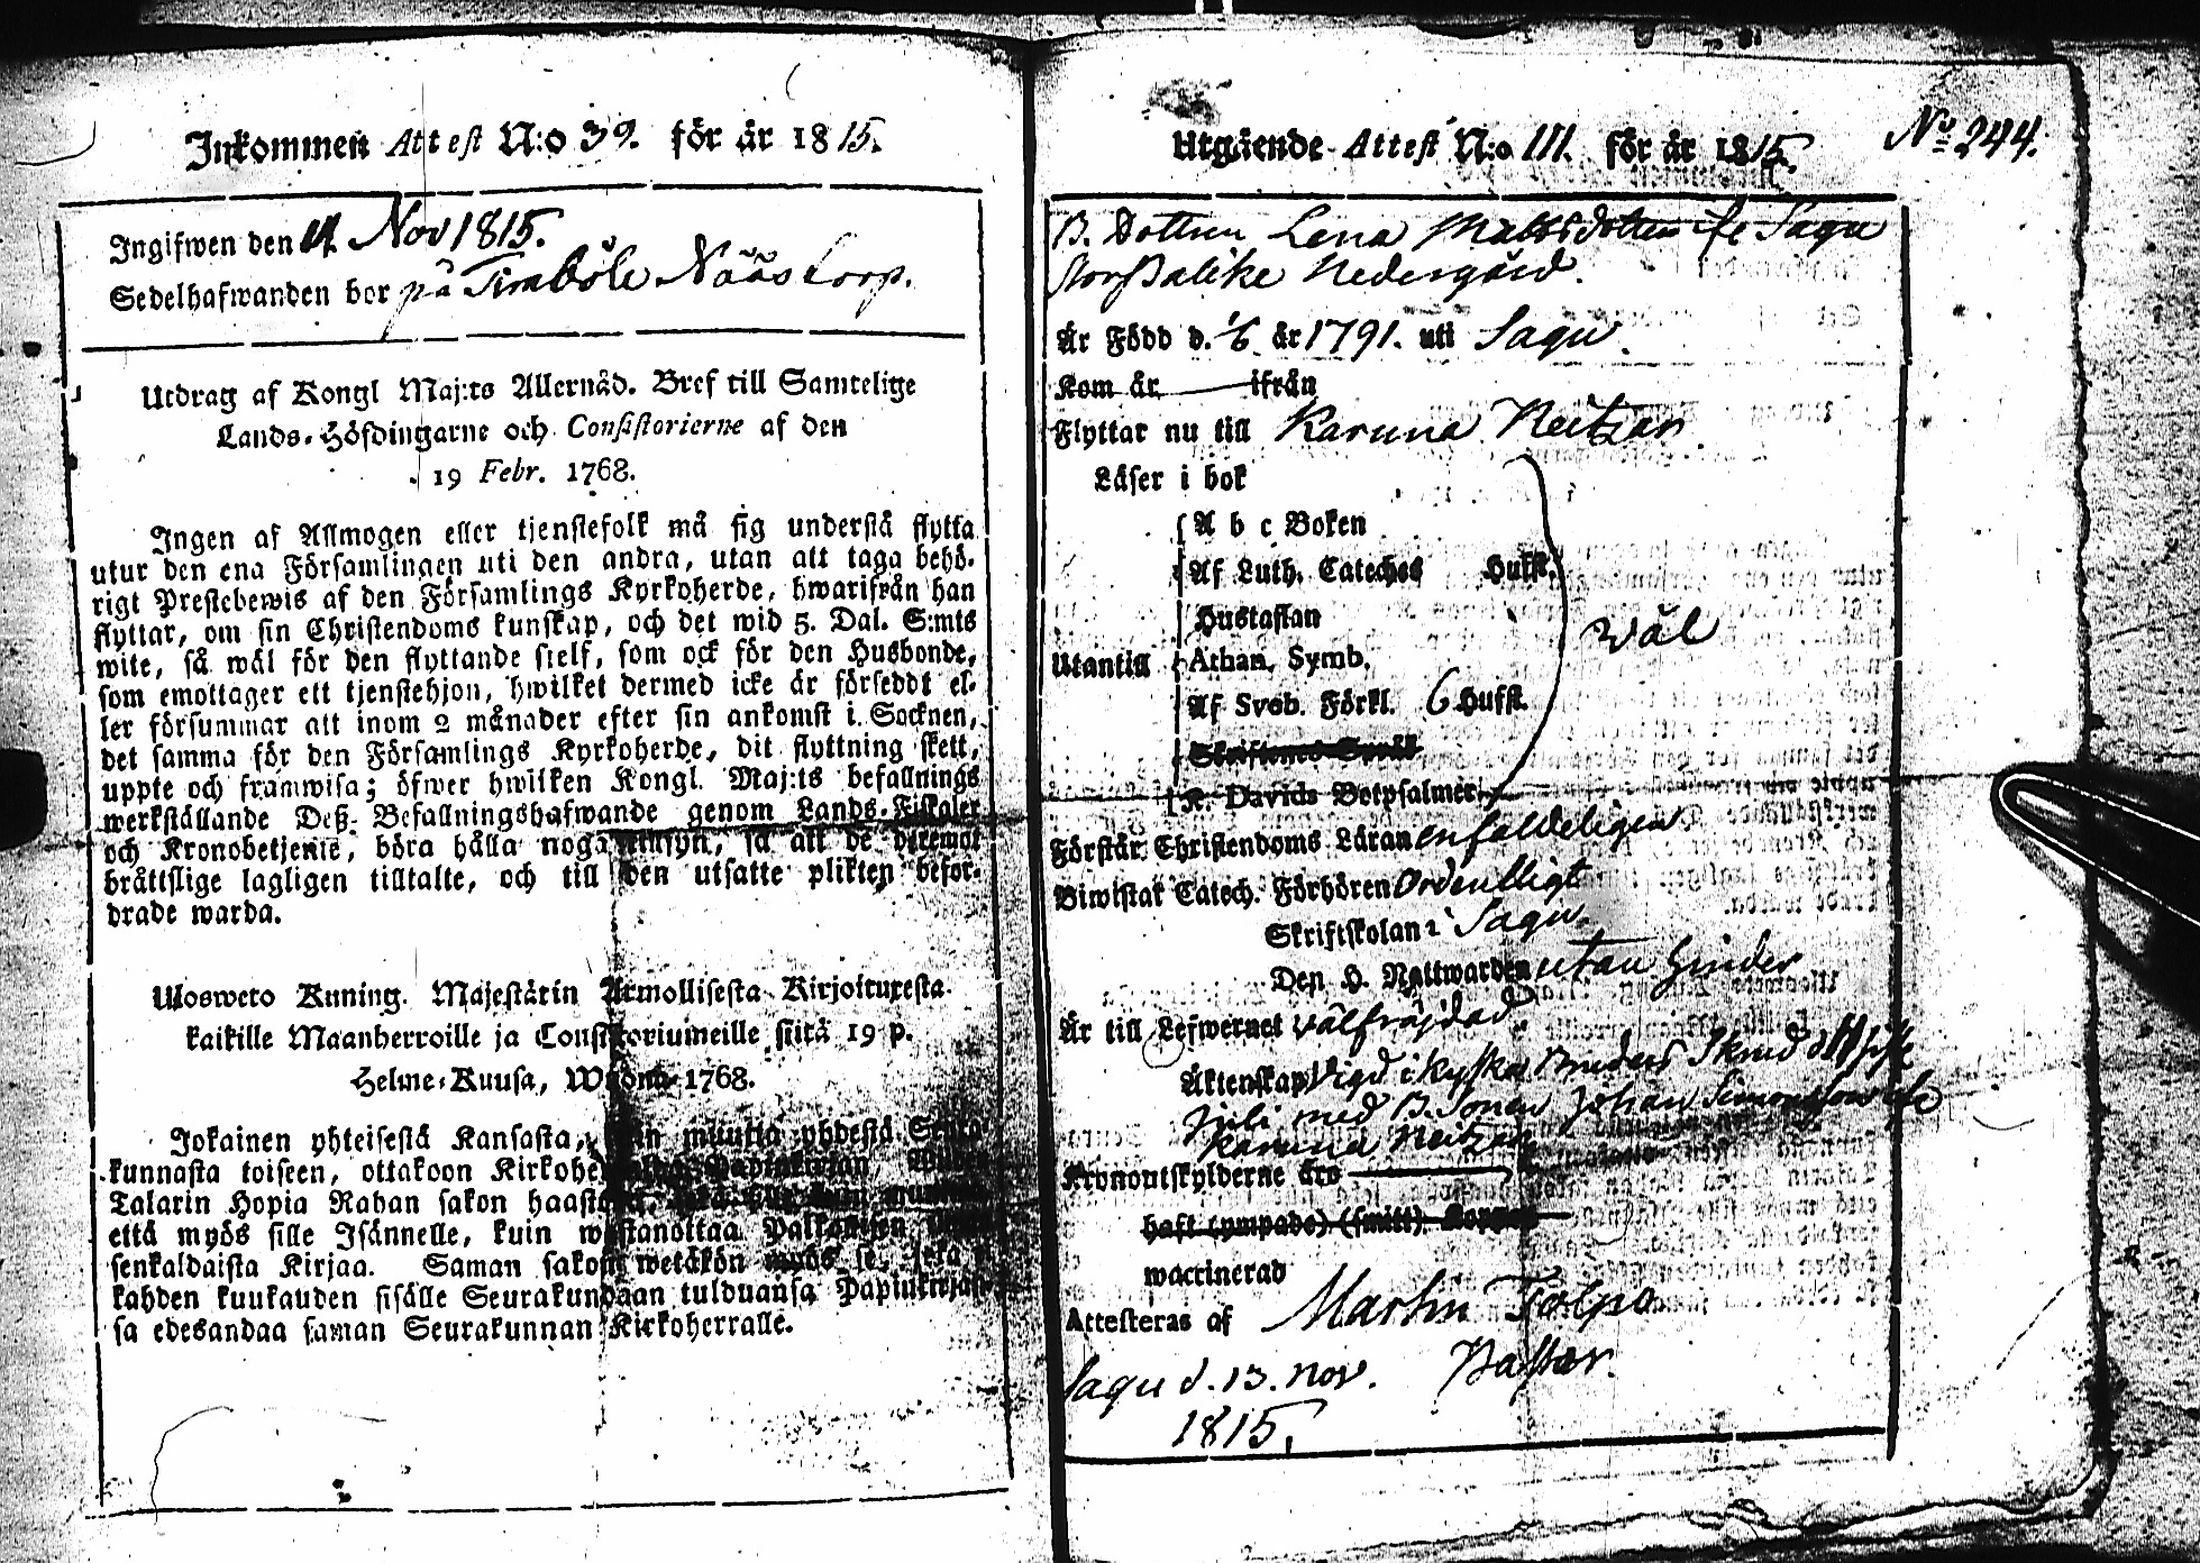 Inkommen Attest N:o 39. för år 1815.
Ingifwen den 14 Nov 1815.
Sedelhafwanden bor på Timböle Nääs Torp.
Utdrag af Kongl Maj:ts Allernåd. Bref till Samtelige
Lands-Höfdingarne och Consistorierne af den
19 Febr. 1768.
Ingen af Allmogen eller tjenstefolk må sig understå flytta
utur den ena Församlingen uti den andra, utan att taga behö-
rigt Prestebewis af den Församlings Kyrkoherde, hwarifrån han
flyttar, om sin Christendoms kunskap, och det wid 5. Dal. S:mts
wite, så wäl för den flyttande sielf, som ock för den Husbonde,
som emottager ett tjenstehjon, hwilket dermed icke är försedt el-
ler försummar att inom 2 månader efter sin ankomst i Socknen,
det samma för den Församlings Kyrkoherde, dit flyttning skett,
uppte och framwisa; öfwer hwilken Kongl. Maj:ts befallnings
werkställande Deß Befallningshafwande genom Lands-Fiskaler
och Kronobetjente, böra hålla noga inseyn, så att de deremot
bråttslige lagligen tilltalte, och till den utsatte plikten befor-
drade warda.
Ulosweto Kuning. Majestätin Armollisesta Kirjoituxesta
kaikille Maanherroille ja Consistoriumeille siitä 19 p.
Helme-Kuusa, Wuonna 1768.
Jokainen yhteisestä Kansasta, kuin muutta yhdestä Seura-
kunnasta toiseen, ottakoon Kirkoherralda Papinkirjan,
Talarin Hopia Rahan sakon haastolla,
että myös sille Isännelle, kuin wastanottaa Palkollisen
senkaldaista Kirjaa. Saman sakon wetäkön myös se, joka
kahden kuukauden sisälle Seurakundaan tulduansa Papinkirjan-
sa edesandaa saman Seurakunnan Kirkoherralle.
Utgående Attest N:o 111. för år 1815.
No 244.
B. Dottren Lena Mattsdotter ifr Sagu
Storpalike Nedergård.
Är Född d. 1/6 år 1791. uti Sagu.
Kom år ifrån
Flyttar nu till Karuna Neitzar
Läser i bok
A b c Boken
Af Luth. Cateches Hufst.
Hustaflan
Utantill Athan. Symb. wäl
Af Sveb. Förkl. 6 Hufst.
K. Davids Botpsalmer
Förstår Christendoms Läran enfaldeligen
Biwistat Catech. Förhören Ordentligt
Skriftskolan i Sagu.
Den H. Nattwarden utan hinder
Är till Lefwernet wälfräjdad
Äktenskap Vigd i kyska Bruders Skrud d.
Juli med B. Sonen Johan Simonsson ifr
Karuna Neitzar
Kronoutskylderne äro
haft (ympade) (smitt) Koppor
waccinerad
Attesteras af Martin Tolpo
Sagu d. 13. Nov. Pastor.
1815.